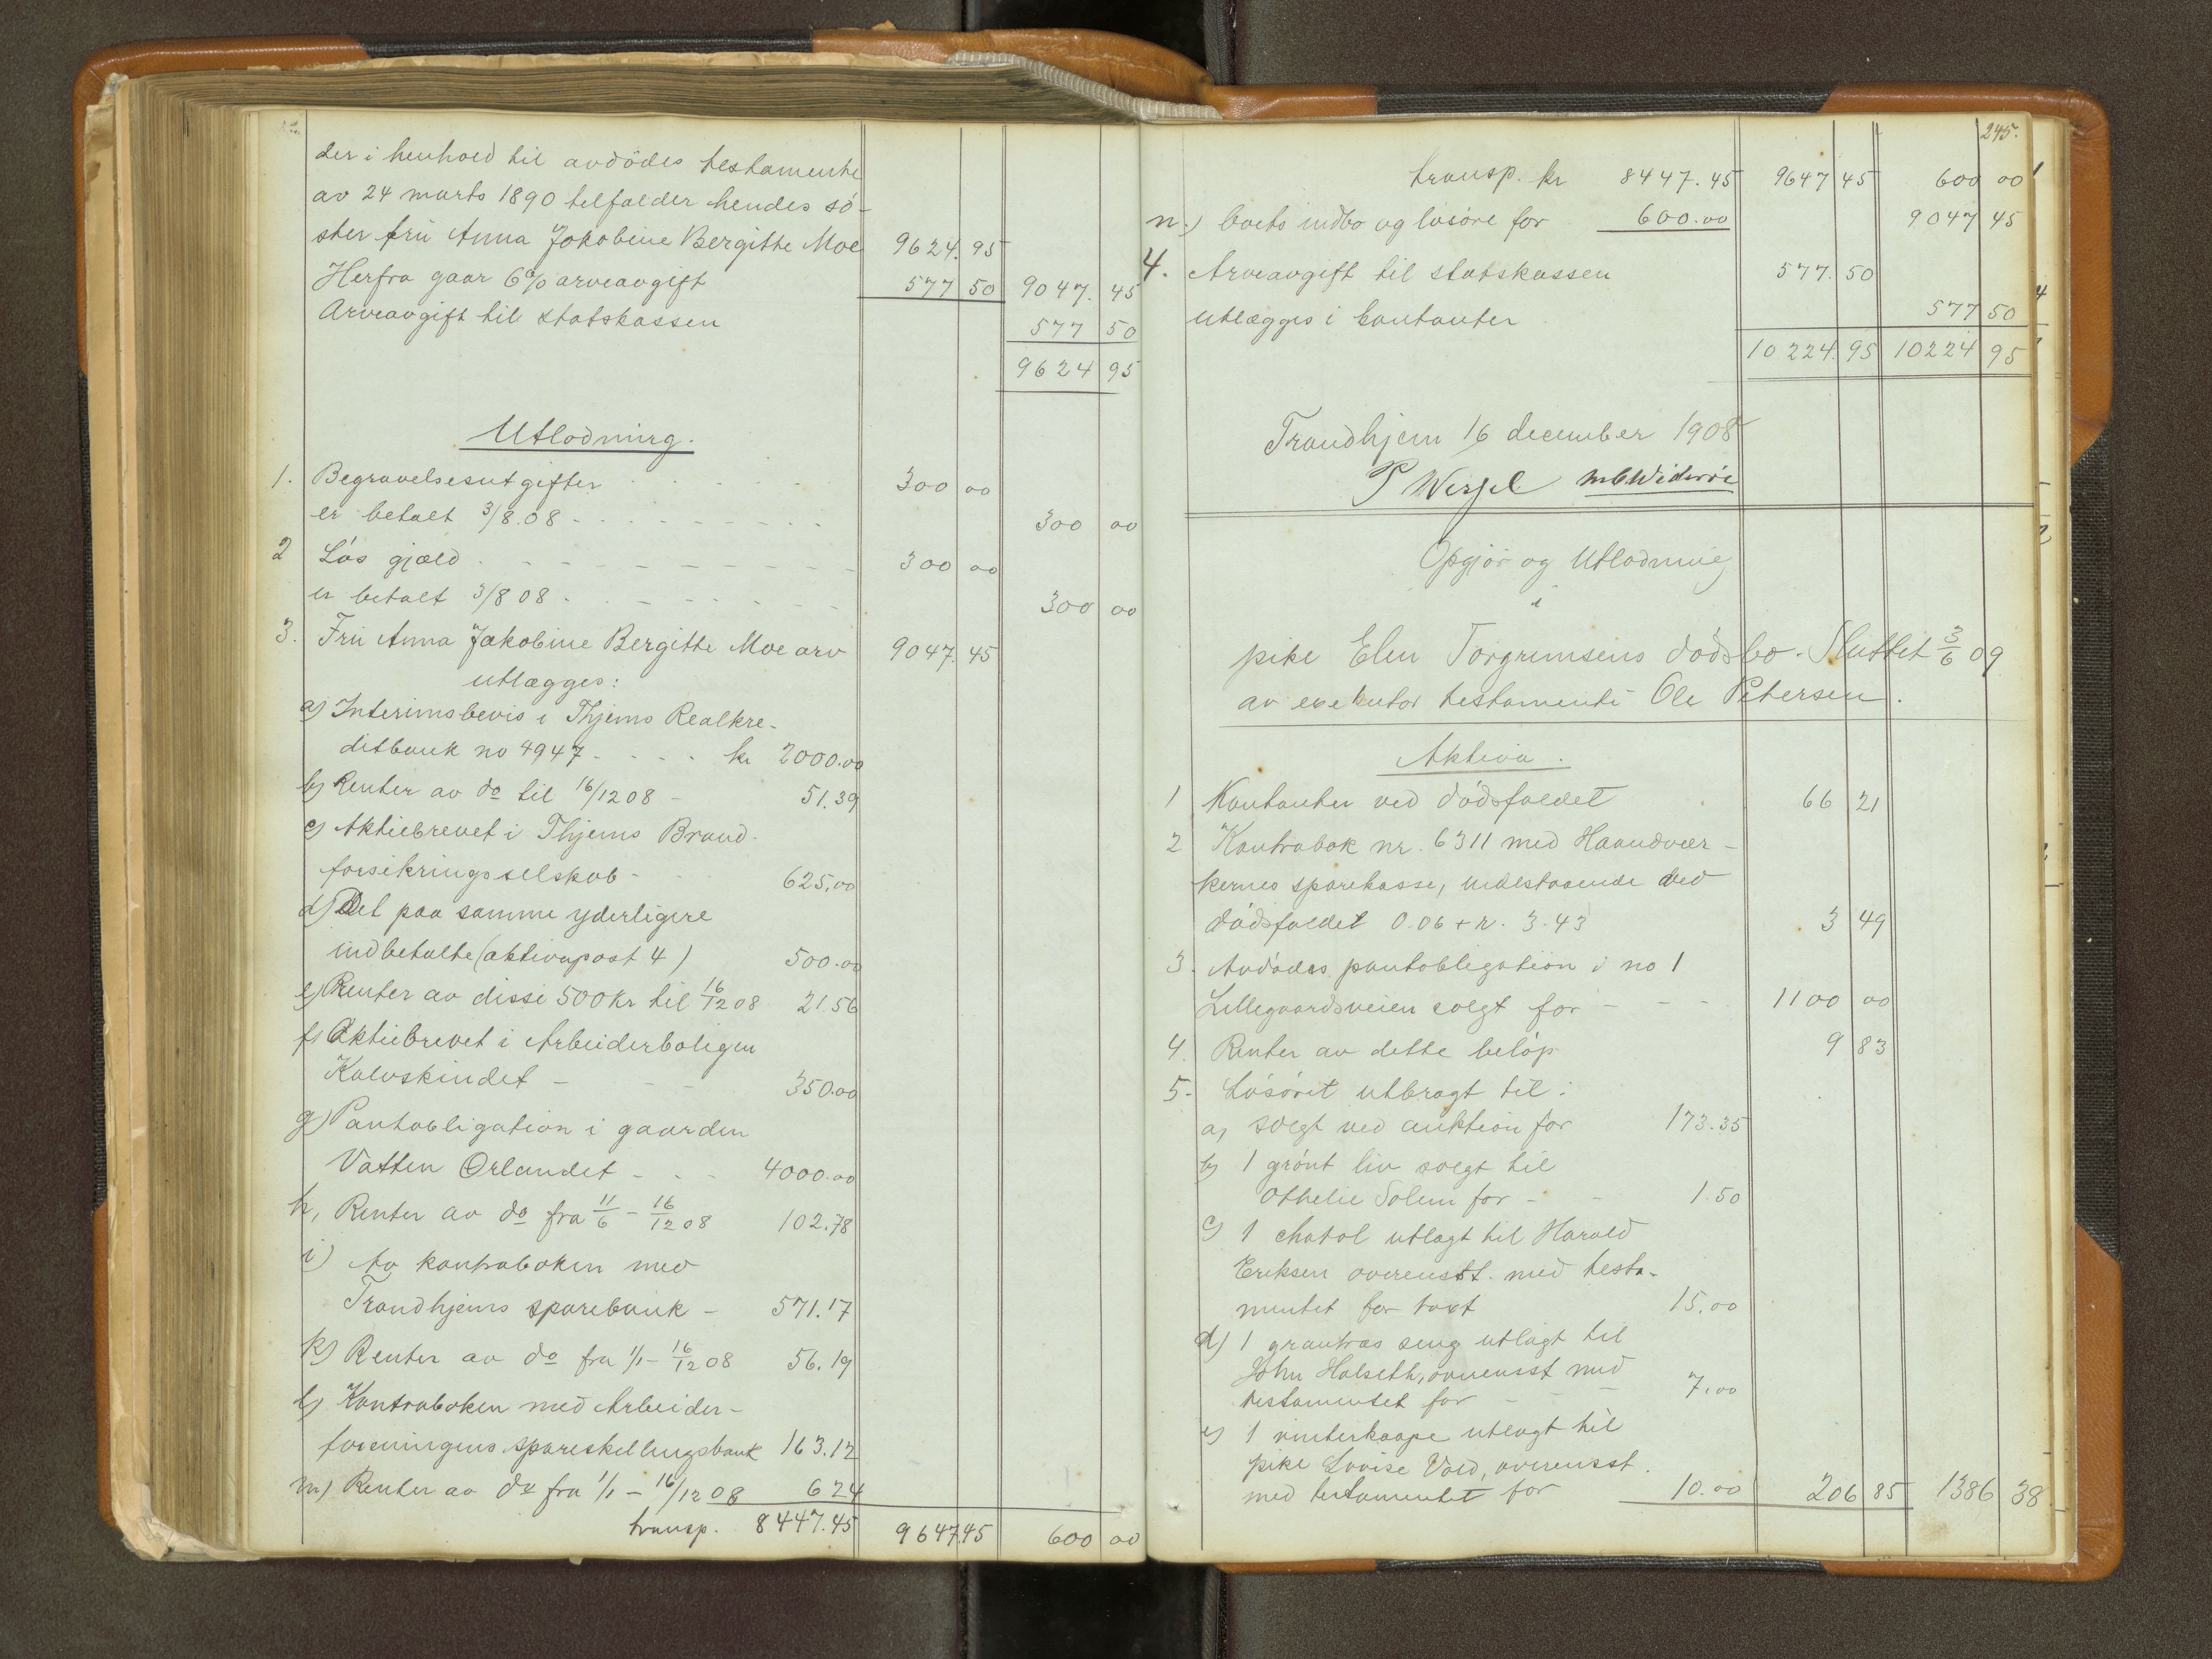 der i henhold til avdödes testamente
av 24 marts 1890 tilfalder hendes sö-
ster fru Anna Jakobine Bergitte Moe 9624.95
Herfra gaar 6% arveavgift 577 50 9047.45
Arveavgift til statskassen 577 50
9624 95
Utlodning.
1. Begravelsesutgifter 300 00
er betalt 3/8.08 300 00
2 Lös gjæld 300 00
er betalt 3/8 08 300 00
3. Fru Anna Jakobine Bergitte Moe arv 9047.45
utlægges:
a) Interimsbevis i Thjems Realkre-
ditbank no 4947 kr 2000.00
b) Renter av do til 16/12 08 51.39
c) Aktiebrevet i Thjems Brand-
forsikringsselskab 625,00
d) Det paa samme yderligere
indbetalte (aktivapost 4) 500.00
e) Renter av disse 500 kr til 16/12 08 21.56
f) Aktiebrevet i Arbeiderboligen
Kalvskindet 350.00
g) Pantobligation i gaarden
Vatten Ørlandet 4000.00
h, Renter av do fra 11/6 - 16/12 08 102.78
i) Av kontraboken med
Trondhjems sparebank 571.17
k) Renter av do fra 1/1 - 16/12 08 56.19
l) Kontraboken med Arbeider-
foreningens spareskillingsbank 163.12
m) Renter av do fra 1/1 - 16/12 08 6 24
transp. 8447.45 9647.45 600 00
245.
transp. kr 8447.45 9647 45 600 00
n.) boets indbo og lösöre for 600.00 9047 45
4. Arveavgift til statskassen 577.50
utlægges i kontanter 577 50
10 224.95 10224 95
Trondhjem 16 december 1908
P Wessel
Opgjör og Utlodning
i
pike Elen Torgrimsens dödsbo. Sluttet 3/6 09
av exekutor testamenti Ole Petersen.
Aktiva.
1 Kontanter ved dödsfaldet 66 21
2 Kontrabok nr. 6311 med Haandvær-
kernes sparekasse, indestaaende ved
dödsfaldet 0.06 + r. 3.43 3 49
3. Avdödes pantobligation i no 1
Lillegaardsveien solgt for 1100 00
4. Renter av dette belöp 9 83
5. Lösöret utbragt til:
a, solgt ved auktion for 173.35
b) 1 grönt liv solgt til
Othelie Solem for 1.50
c) 1 chatol utlagt til Harald
Eriksen overensst. med testa-
mentet for taxt 15.00
d) 1 grantræs seng utlagt til
John Halseth, overensst med
testamentet for 7.00
e) 1 vinterkaape utlagt til
pike Lovise Vold, overensst.
med testamentet for 10.00 206 85 1386 38